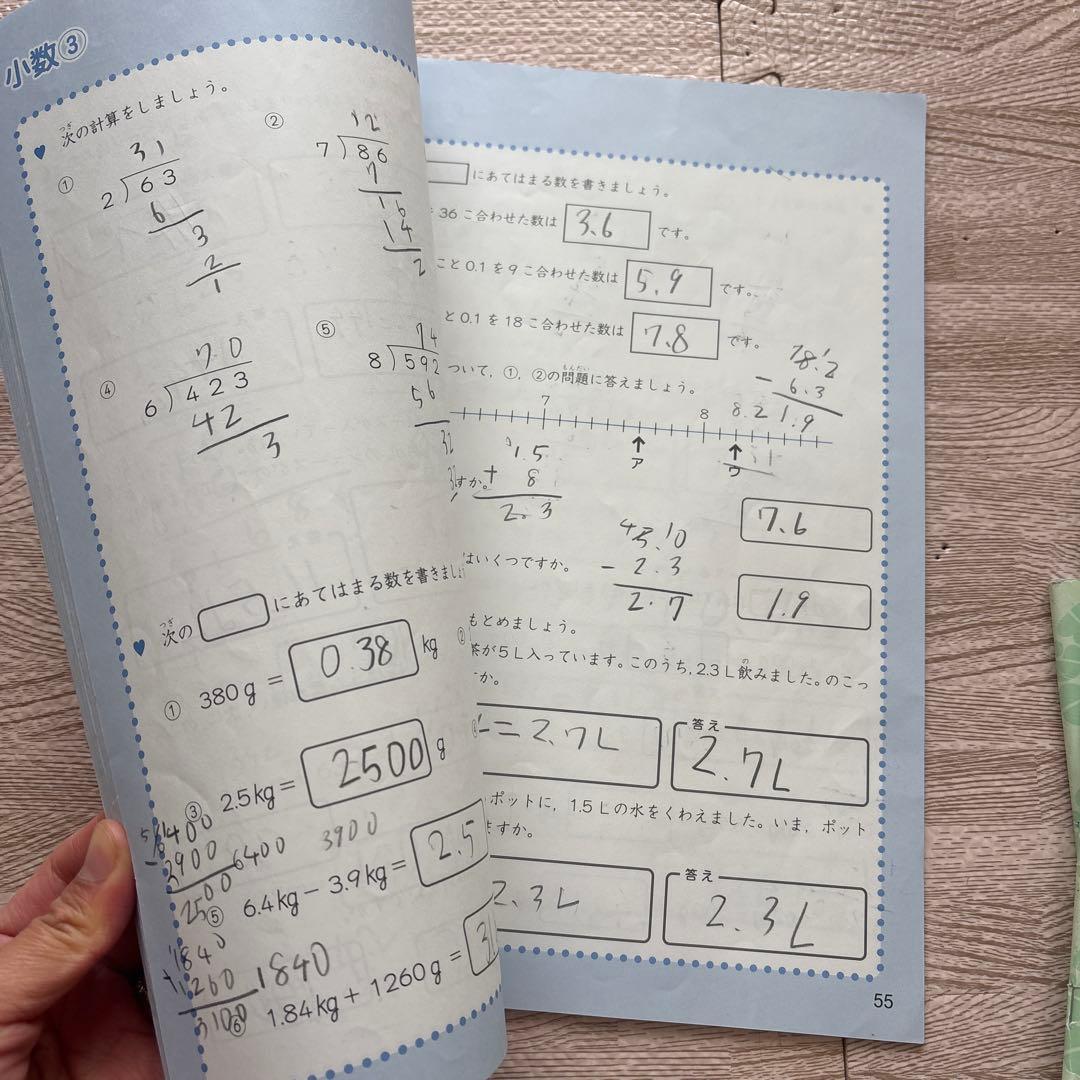 小数③
次の計算をしましょう。
①
31
2)63
6
3
2
1
②
12
7)86
7
16
14
2
④
70
6)423
42
3
⑤
74
8)592
56
32
次の にあてはまる数を書きましょ
① 380g = 0.38 kg
③ 2.5kg = 2500 g
6400
3900
2500
6400 3900
⑤ 6.4kg − 3.9kg = 2.5
1840
+1260
3100
1840
⑥ 1.84kg + 1260g =
にあてはまる数を書きましょう。
36こ合わせた数は 3.6 です。
こと0.1を9こ合わせた数は 5.9 です。
と0.1を18こ合わせた数は 7.8 です。
ついて,①,②の問題に答えましょう。
8.2
− 6.3
1.9
8.2
7 8
ア ウ
1.5
+ 8
2.3
すか。
7.6
はいくつですか。
5.0
− 2.3
2.7
1.9
もとめましょう。
茶が5L入っています。このうち,2.3L飲みました。のこっ
すか。
=2.7L
答え
2.7L
ポットに,1.5Lの水をくわえました。いま,ポット
ますか。
2.3L
答え
2.3L
55